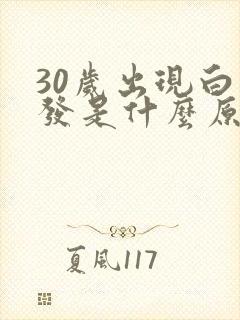 30歲出現白
發是什麼原
夏風117